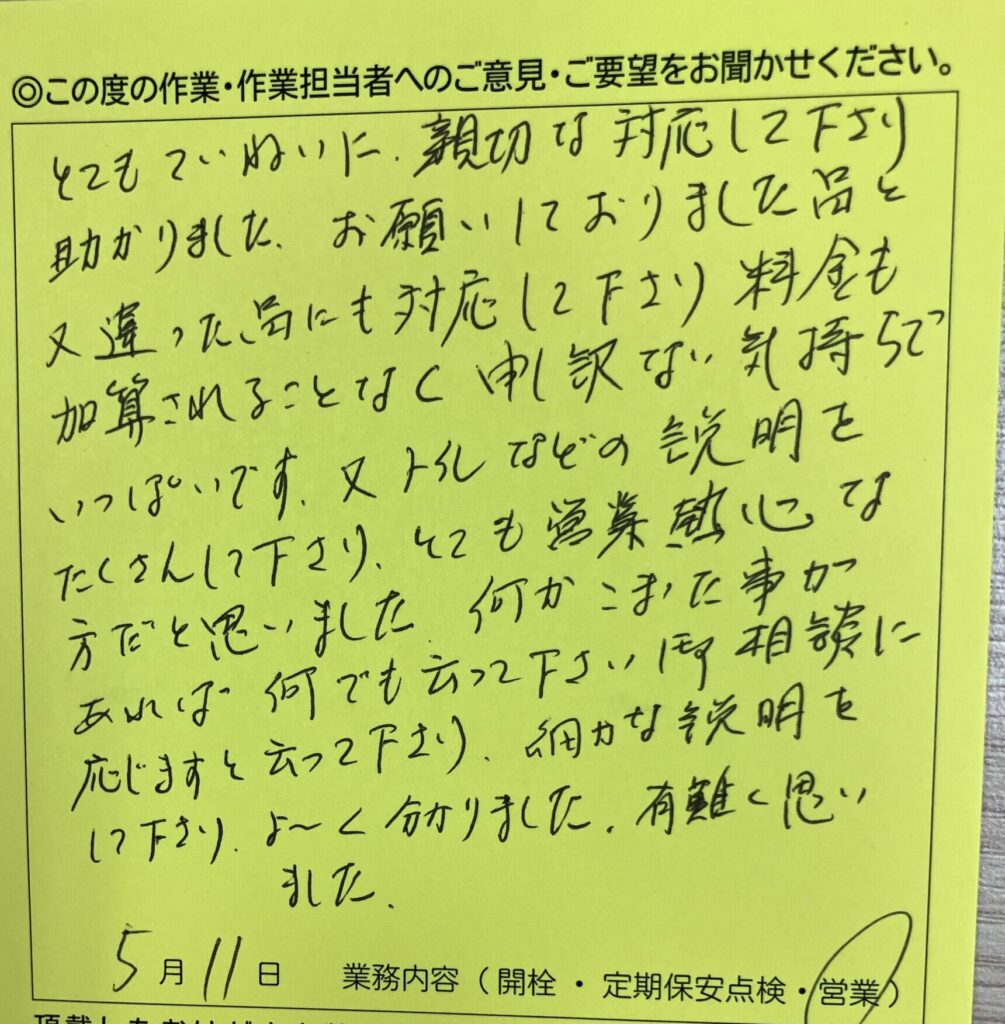 ◎この度の作業・作業担当者へのご意見・ご要望をお聞かせください。
とてもていねいに、親切な対応して下さり
助かりました、お願いしておりました品と
又違った品にも対応して下さり料金も
加算されることなく申し訳ない気持ちで
いっぱいです、又トイレなどの説明を
たくさんして下さり、とても営業熱心な
方だと思いました、何かこまった事が
あれば何でも云って下さい御相談に
応じますと云って下さり、細かな説明を
して下さり、よ〜く分かりました、有難く思い
ました、
5月11日 業務内容（開栓・定期保安点検・営業）